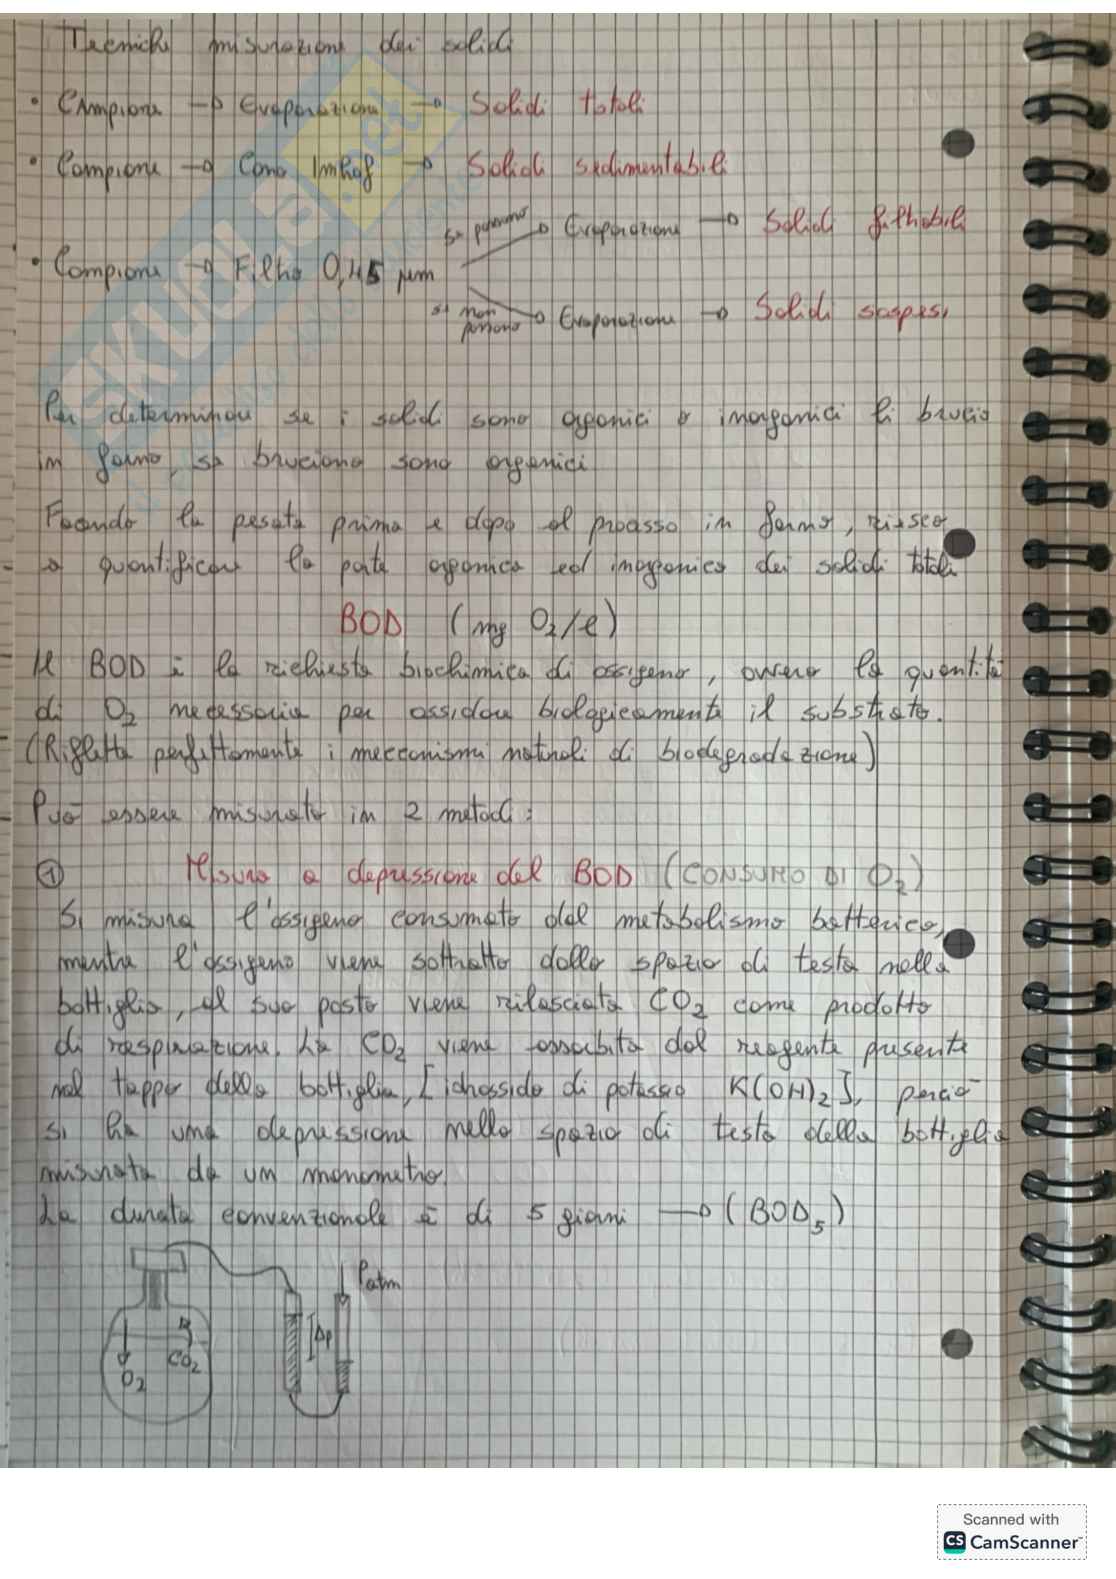 Tecniche misurazione dei solidi
• Campione → Evaporazione → Solidi totali
• Campione → Cono Imhof → Solidi sedimentabili
se passano → Evaporazione → Solidi filtrabili
• Campione → Filtro 0,45 μm
se non passano → Evaporazione → Solidi sospesi
Per determinare se i solidi sono organici o inorganici li brucio
in forno, se bruciano sono organici
Facendo la pesata prima e dopo al processo in forno, riesco
a quantificare la parte organica ed inorganica dei solidi totali
BOD (mg O₂/l)
Il BOD è la richiesta biochimica di ossigeno, ovvero la quantità
di O₂ necessaria per ossidare biologicamente il substrato.
(Rifletta perfettamente i meccanismi naturali di biodegradazione)
Può essere misurato in 2 metodi:
① Misura a depressione del BOD (CONSUMO DI O₂)
Si misura l'ossigeno consumato dal metabolismo batterico,
mentre l'ossigeno viene sottratto dallo spazio di testa nella
bottiglia, al suo posto viene rilasciata CO₂ come prodotto
di respirazione. La CO₂ viene assorbita dal reagente presente
nel tappo della bottiglia, [idrossido di potassio K(OH)₂], perciò
si ha una depressione nello spazio di testa della bottiglia
misurata da un manometro.
La durata convenzionale è di 5 giorni → (BOD₅)
Patm
Δp
CO₂
O₂
SKUOLA.net
Scanned with
CS CamScanner